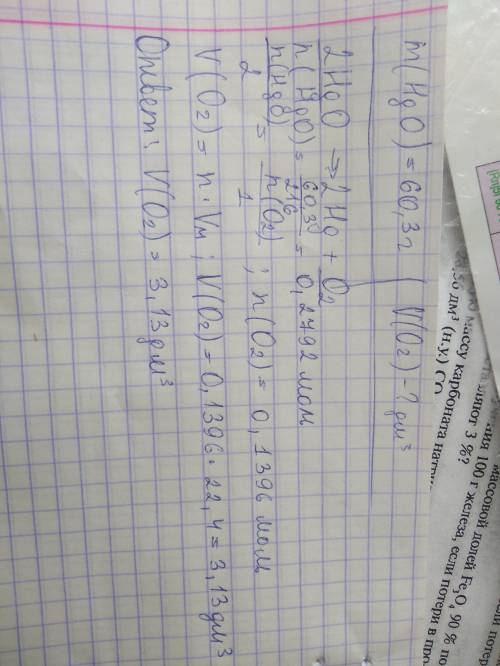 m(HgO) = 60,3г | V(O₂) - ? дм³
2HgO → 2Hg + O₂
n(HgO) = 60,3/216 = 0,2792 моль
n(HgO)/2 = n(O₂)/1 ; n(O₂) = 0,1396 моль
V(O₂) = n · Vм ; V(O₂) = 0,1396 · 22,4 = 3,13 дм³
Ответ: V(O₂) = 3,13 дм³
массовой долей Fe₃O₄ 90 %
100 г железа, если потери в
3 %?
массу карбоната
дм³ (н.у.)